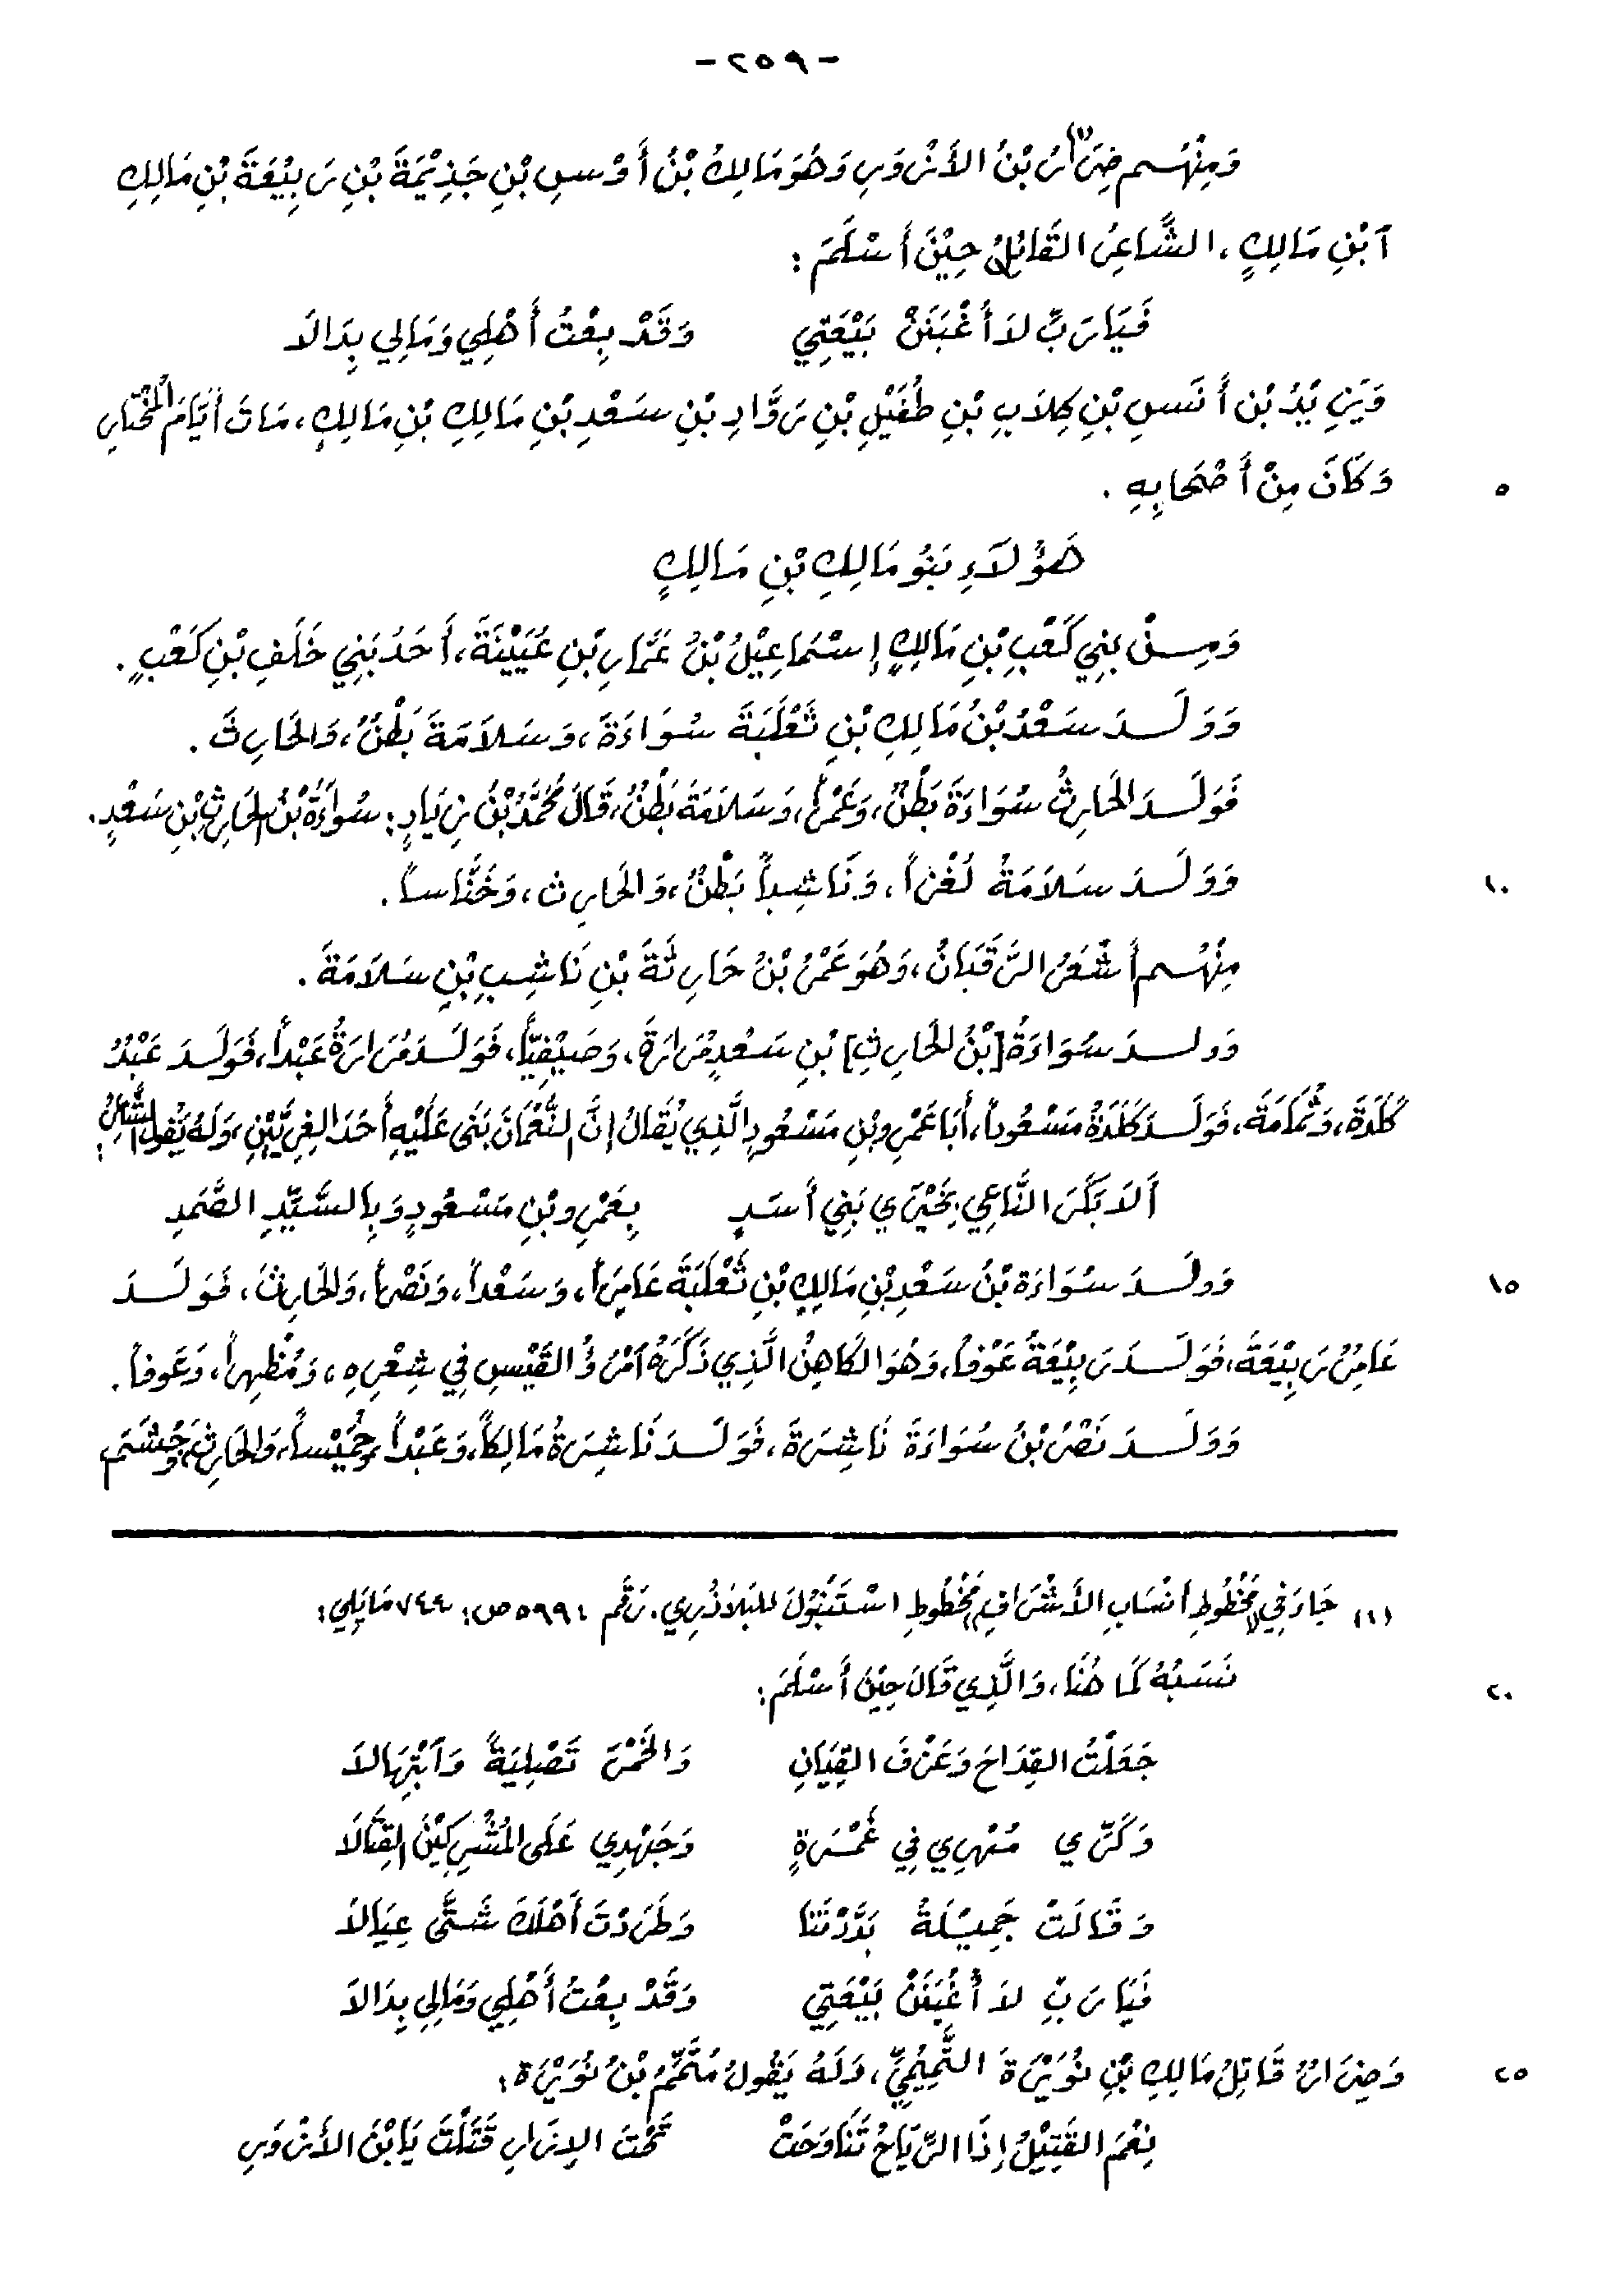 -٢٥٩-
وَمِنْهُم ضِرَارُ(١) بْنُ الأَزْوَرِ وَهُوَ مَالِكُ بْنُ أَوْسِ بْنِ جَذِيْمَةَ بْنِ رَبِيْعَةَ بْنِ مَالِكِ
آبْنِ مَالِكٍ، الشَّاعِرُ القَائِلُ حِيْنَ أَسْلَمَ :
فَيَارَبِّ لاَ أُغْبَنَنْ بَيْعَتِي وَقَدْ بِعْتُ أَهْلِي وَمَالِي بِدَالاَ
وَيَزِيْدُ بْن أَنَسِ بْنِ كِلاَبِ بْنِ طُفَيْلِ بْنِ رَوَّادِ بْنِ سَعْدِ بْنِ مَالِكِ بْنِ مَالِكٍ، مَاتَ أَيَّامَ المُخْتَارِ
٥ وَكَانَ مِنْ أَصْحَابِهِ .
هَؤُلاَءِ بَنُو مَالِكِ بْنِ مَالِكٍ
وَمِنْ بَنِي كَعْبِ بْنِ مَالِكٍ إِسْمَاعِيْلُ بْنُ عَمَّارِ بْنِ عُيَيْنَةَ، أَحَدُ بَنِي خَلَفِ بْنِ كَعْبٍ .
وَوَلَدَ سَعْدُ بْنُ مَالِكِ بْنِ ثَعْلَبَةَ سُوَاءَةَ، وَسَلاَمَةَ بَطْنٌ، وَالحَارِثَ .
فَوَلَدَ الحَارِثُ سُوَاءَةَ بَطْنٌ، وَعَمْراً، وَسَلاَمَةَ بَطْنٌ، قَالَ مُحَمَّدُ بْنُ زِيَادٍ: سُوَاءَةُ بْنُ الحَارِثِ بْنِ سَعْدٍ.
١٠ وَوَلَدَ سَلاَمَةُ لَغْزاً، وَنَاشِباً بَطْنٌ، وَالحَارِث، وَخَنَّاساً .
مِنْهُم أَشْعَرُ الرَّقَبَانُ، وَهُوَ عَمْرُ بْنُ حَارِثَةَ بْنِ نَاشِبِ بْنِ سَلاَمَةَ .
وَولدَ سُوَاءَةُ [بْنُ الحَارِثِ] بْنِ سَعْدٍ مُرَارَةَ، وَصَيْفِيّاً، فَوَلَدَ مُرَارَةُ عَبْداً، فَوَلَدَ عَبْدُ
كَلَدَةَ، وَثُمَامَةَ، فَوَلَدَ كَلَدَةُ مَسْعُوداً، أَبَا عَمْرِو بْنِ مَسْعُودٍ الَّذِي يُقَالُ إِنَّ النُّعْمَانَ بَنَى عَلَيْهِ أَحَدَ الغَرِيَّيْنِ، وَلَهُ يَقُولُ الشَّاعِرُ:
أَلاَ بَكَرَ النَّاعِي بِخَيْرَي بَنِي أَسَدٍ بِعَمْرِو بْنِ مَسْعُودٍ وَبِالسَّيِّدِ الصَّمَدِ
١٥ وَولَدَ سُوَاءَة بْنُ سَعْدِ بْنِ مَالِكِ بْنِ ثَعْلَبَةَ عَامِراً، وَسَعْداً، وَنَصْراً، وَالحَارِثَ، فَوَلَدَ
عَامِرُ رَبِيْعَةَ، فَوَلَدَ رَبِيْعَةُ عَوْفاً، وَهُوَ الكَاهِنُ الَّذِي ذَكَرَهُ آمْرُؤُ القَيْسِ فِي شِعْرِهِ، وَمُظْهِراً، وَعَوفاً .
وَوَلَدَ نَصْرُ بْنُ سُوَاءَةَ نَاشِرَةَ، فَوَلَدَ نَاشِرَةُ مَالِكاً، وَعَبْداً، وَخُمَيْساً، وَالحَارِثَ، وَجُشَمَ
(١) جَاءَ فِي مَخْطُوطِ أَنْسَابِ الأَشْرَافِ مَخْطُوطِ اسْتَنْبُولَ للبَلاَذُرِي. رَقْم ٥٩٩٤ ص: ٧٤٤ مَايَلِي:
٢٠ نَسَبُهُ كَمَا هُنَا، وَالَّذِي قَالَ حِيْنَ أَسْلَمَ:
جَعَلْتُ القِدَاحَ وَعَزْفَ القِيَانِ وَالخَمْرَ تَصْلِيَةً وَآبْتِهَالاَ
وَكَرِّي مُهْرِي فِي غَمْرَةٍ وَجَهْدِي عَلَى المُشْرِكِيْنَ القِتَالاَ
وَقَالَتْ جَمِيْلَةُ بَدَّدْتَنَا وَطَرَدْتَ أَهْلَكَ شَتَّى عِيَالاَ
فَيَارَبِّ لاَ أُغْبَنَنْ بَيْعَتِي وَقَدْ بِعْتُ أَهْلِي وَمَالِي بِدَالاَ
٢٥ وَضِرَارُ قَاتِلُ مَالِكِ بْنِ نُوَيْرَةَ التَّمِيْمِيِّ، وَلَهُ يَقُولُ مُتَمِّمُ بْنُ نُوَيْرَة:
نِعْمَ القَتِيْلُ إِذَا الرِّيَاحُ تَنَاوَحَتْ تَحْتَ الإِزَارِ قَتَلْتَ يَا بْنَ الأَزْوَرِ